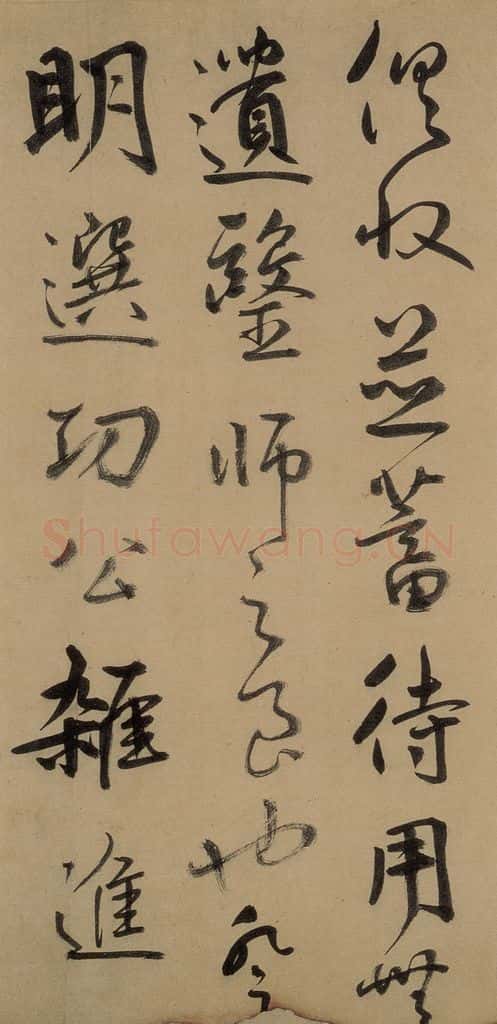 俱收並蓄待用無
遺醫師之良也登
明選功公雜進
Shufawang.CN